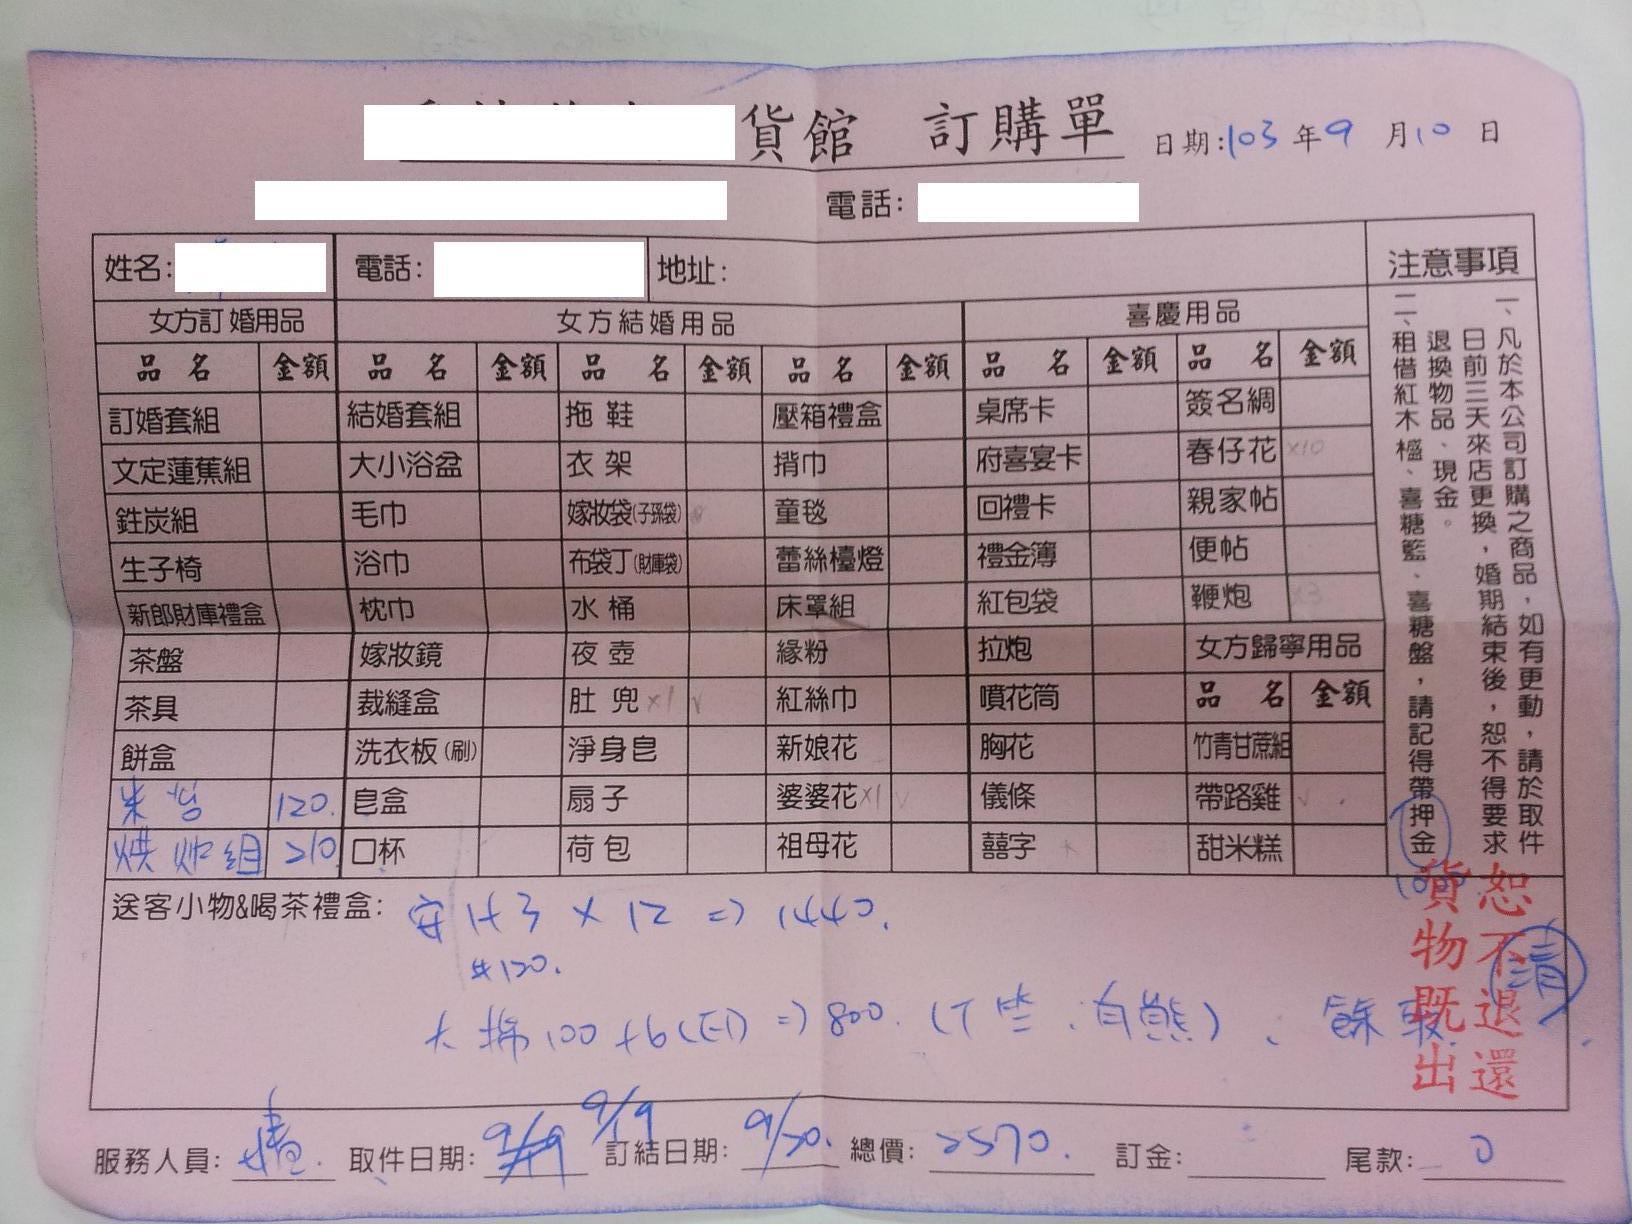 貨館 訂購單 日期:103年9月10日
電話:
姓名: 電話: 地址: 注意事項
女方訂婚用品 女方結婚用品 喜慶用品
品名 金額 品名 金額 品名 金額 品名 金額 品名 金額 品名 金額
訂婚套組 結婚套組 拖鞋 壓箱禮盒 桌席卡 簽名綢
文定蓮蕉組 大小浴盆 衣架 揹巾 府喜宴卡 春仔花 x10
鉎炭組 毛巾 嫁妝袋(子孫袋) 童毯 回禮卡 親家帖
生子椅 浴巾 布袋丁(財庫袋) 蕾絲檯燈 禮金簿 便帖
新郎財庫禮盒 枕巾 水桶 床罩組 紅包袋 鞭炮 x3
茶盤 嫁妝鏡 夜壺 緣粉 拉炮 女方歸寧用品
茶具 裁縫盒 肚兜 x1 v 紅絲巾 噴花筒 品名 金額
餅盒 洗衣板(刷) 淨身皂 新娘花 胸花 竹青甘蔗組
120. 皂盒 扇子 婆婆花 x1 v 儀條 帶路雞 v
組 210 口杯 荷包 祖母花 囍字 甜米糕
一、凡於本公司訂購之商品，如有更動，請於取件
日前三天來店更換，婚期結束後，恕不得要求
退換物品、現金。
二、租借紅木櫺、喜糖籃、喜糖盤，請記得帶押金
送客小物&喝茶禮盒: x 12 => 1440.
#120.
大 100 + 6 => 800.
貨物既出
恕不退還
清
服務人員: 取件日期: 9/9 訂結日期: 9/20. 總價: 2570. 訂金: 尾款: 0